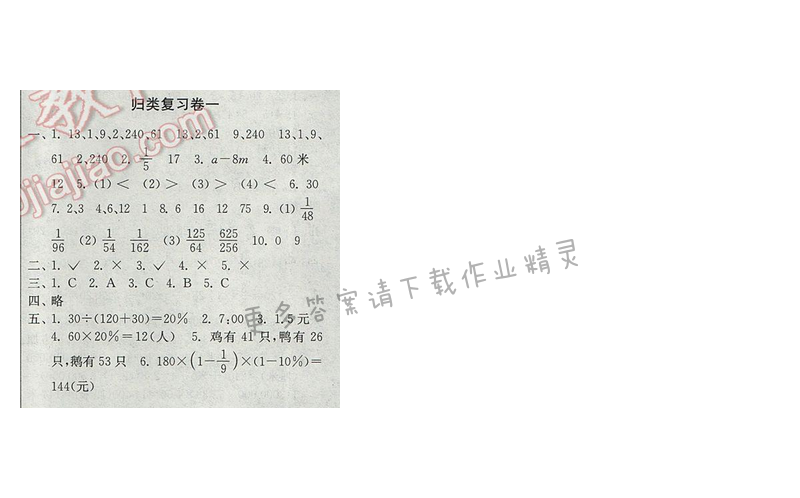 归类复习卷一
一、1. 13、1、9、2、240、61 13、2、61 9、240 13、1、9、
61 2、240 2. 1/5 17 3. a-8m 4. 60米
12 5. (1)< (2)> (3)> (4)< 6. 30
7. 2、3 4、6、12 1 8. 6 16 12 75 9. (1) 1/48
1/96 (2) 1/54 1/162 (3) 125/64 625/256 10. 0 9
二、1. ✓ 2. × 3. ✓ 4. × 5. ×
三、1. C 2. A 3. C 4. B 5. C
四、略
五、1. 30÷(120+30)=20% 2. 7:00 3. 1.5元
4. 60×20%=12(人) 5. 鸡有41只,鸭有26
只,鹅有53只 6. 180×(1-1/9)×(1-10%)=
144(元)
更多答案请下载作业精灵